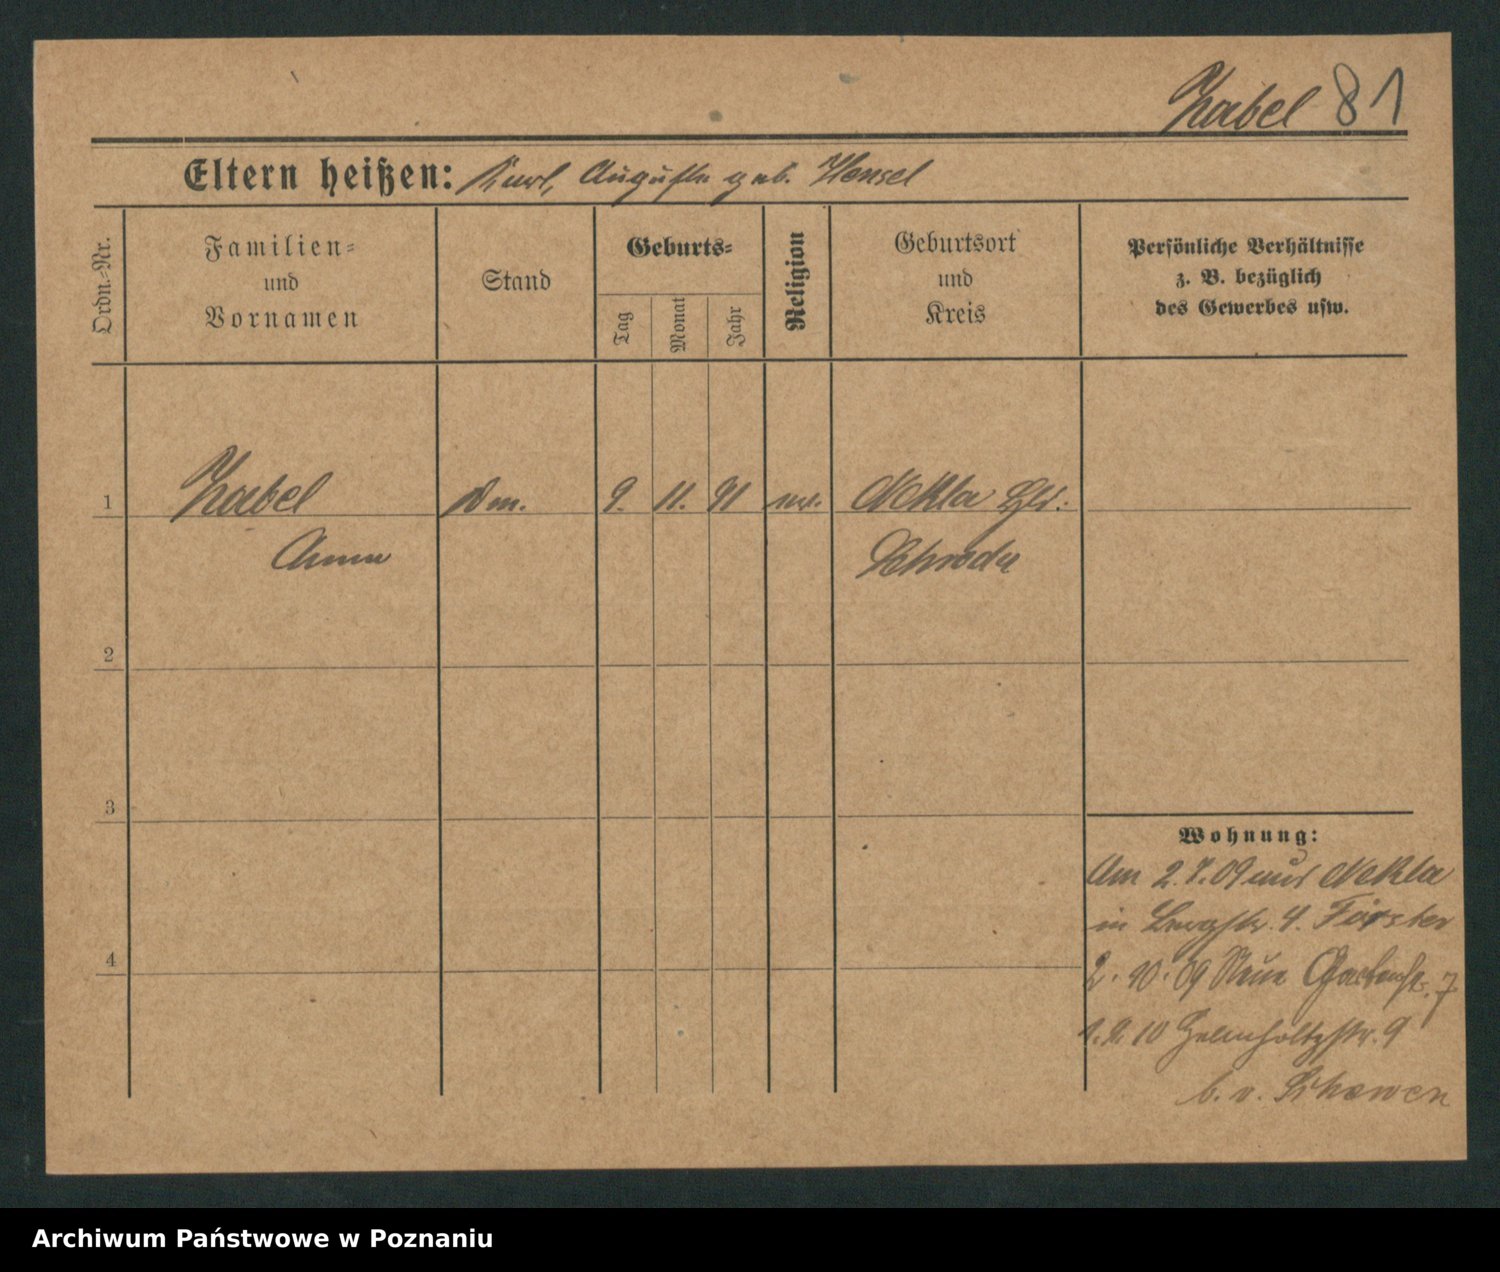 Zabel 81
Eltern heißen: Karl, Auguste geb. Hensel
Ordn.-Nr.
Familien-
und
Vornamen
Stand
Geburts-
Tag
Monat
Jahr
Religion
Geburtsort
und
Kreis
Persönliche Verhältnisse
z. B. bezüglich
des Gewerbes usw.
1
Zabel
9. 11. 91
Nekla
Anna
Schroda
2
3
4
Wohnung:
Am 2.7.09 aus Nekla
in Bergstr. 4. Förster
2. 10. 09 Neue Gartenstr. 7
10 Helmholtzstr. 9
b. v.